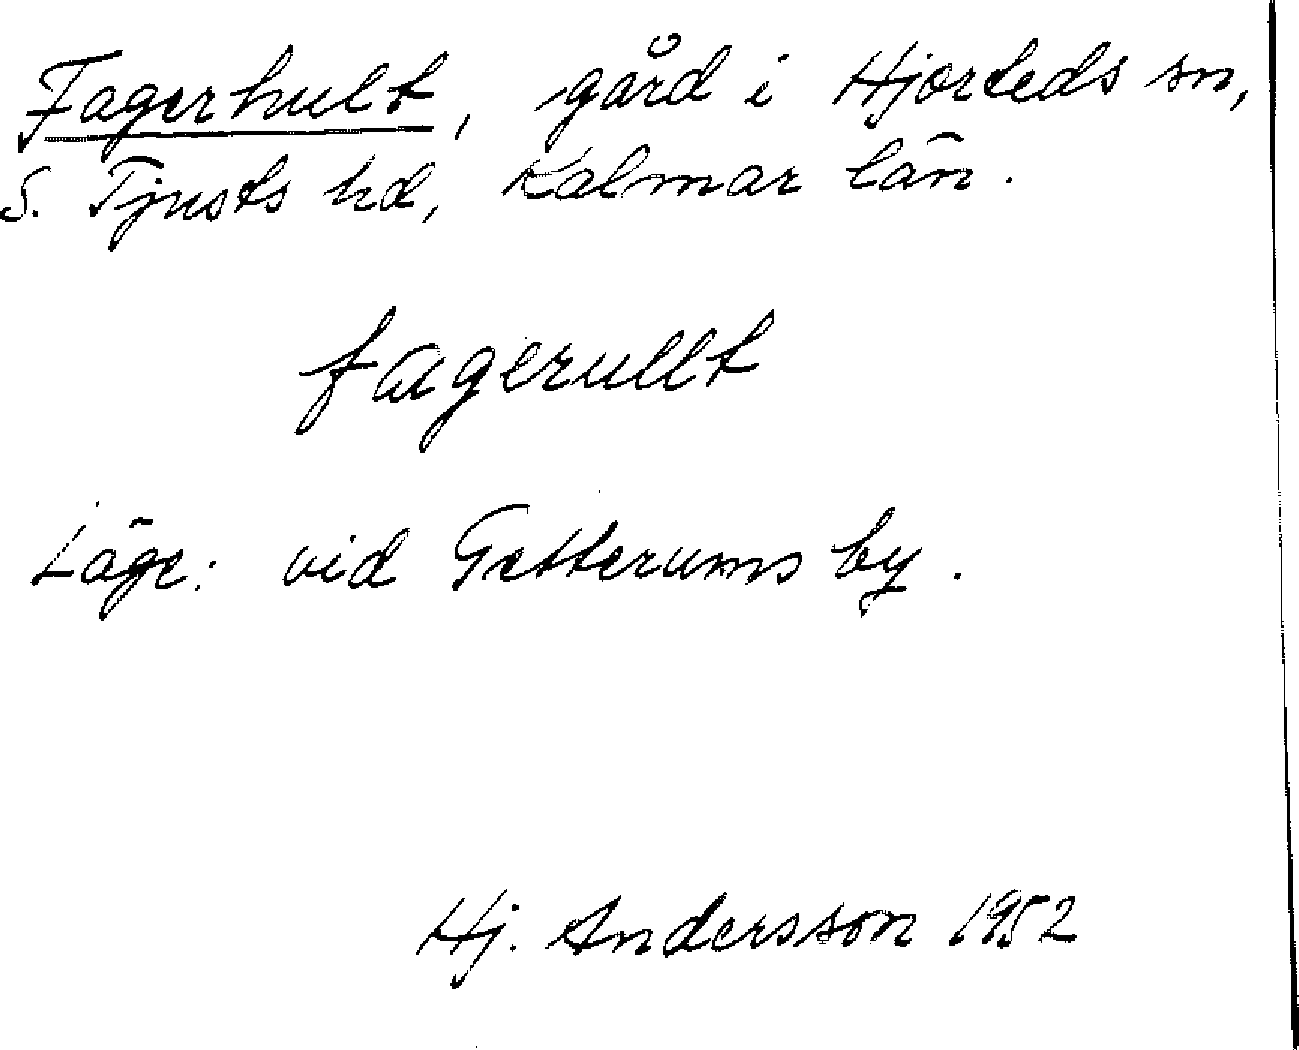 Fagerhult, gård i Hjorteds sn,
S. Tjusts hd, Kalmar län.
fagerullt
Läge: vid Getterums by.
Hj. Andersson 1952